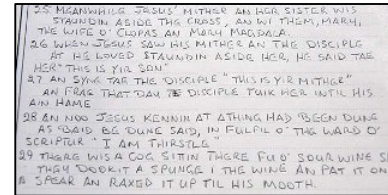 25 MEANWHILE JESUS' MITHER AN HER SISTER WIS
STAUNDIN ASIDE THE CROSS, AN WI THEM, MARY,
THE WIFE O' CLOPAS AN MARY MAGDALA.
26 WHEN JESUS SAW HIS MITHER AN THE DISCIPLE
AT HE LOVED STAUNDIN ASIDE HER, HE SAID TAE
HER "THIS IS YIR SON"
27 AN SYNE TAE THE DISCIPLE "THIS IS YIR MITHER"
AN FRAE THAT DAY DISCIPLE TUIK HER INTIL HIS
AIN HAME
28 AN NOO JESUS KENNIN AT ATHING HAD BEEN DUNE
AS BAID BE DUNE SAID, IN FULFIL O' THE WARD O'
SCRIPTUR "I AM THIRSTLE"
29 THERE WIS A COG SITTIN THERE FU O' SOUR WINE
THEY DOOKIT A SPUNGE I THE WINE AN PAT IT ON
A SPEAR AN RAXED IT UP TIL HIS MOOTH